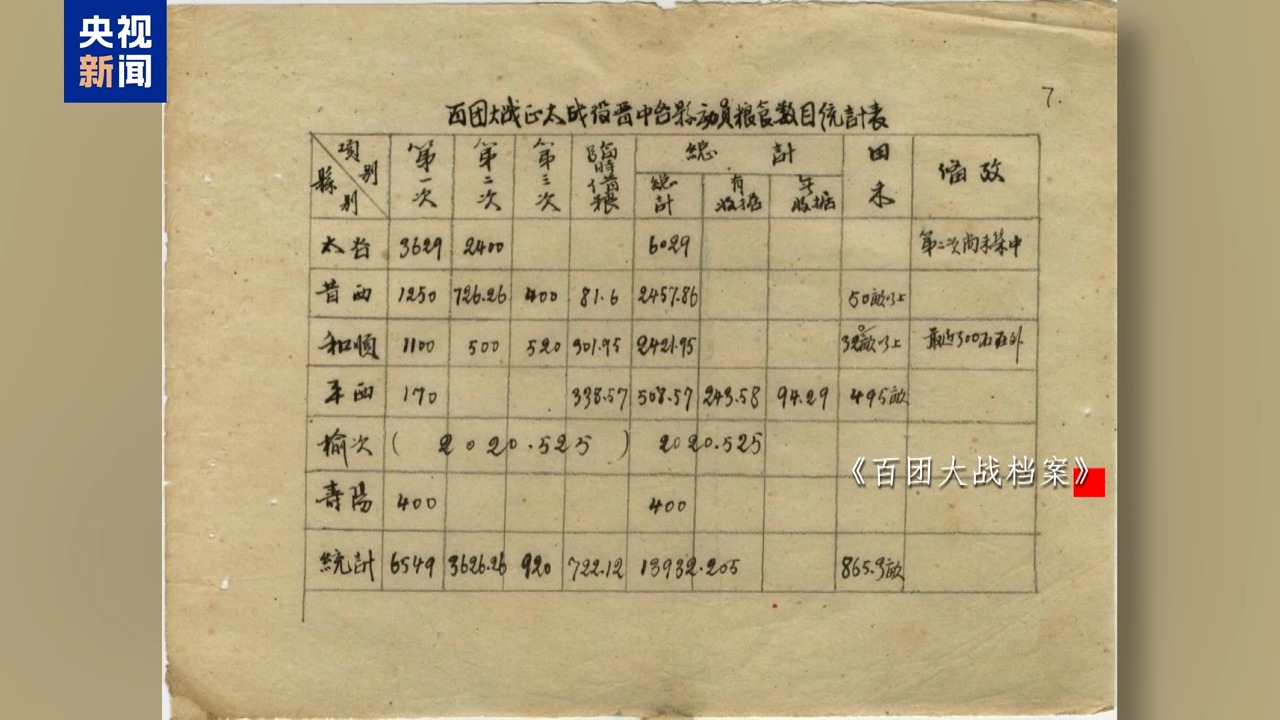 央视
新闻
7.
百团大战正太战役晋中各縣动員粮食数目统計表
項別 縣別 第一次 第二次 第三次 臨時借粮 總計 田禾 備攷
總計 有收据 無收据
太谷 3629 2400 6029 第二次尚未集中
昔西 1250 726.26 400 81.6 2457.86 50畝以上
和順 1100 500 520 301.95 2421.95 320畝以上 最近300石在外
平西 170 338.57 508.57 243.58 94.29 495畝
榆次 ( 2020.525 ) 2020.525
《百团大战档案》
壽陽 400 400
統計 6549 3626.26 920 722.12 13932.205 865.3畝